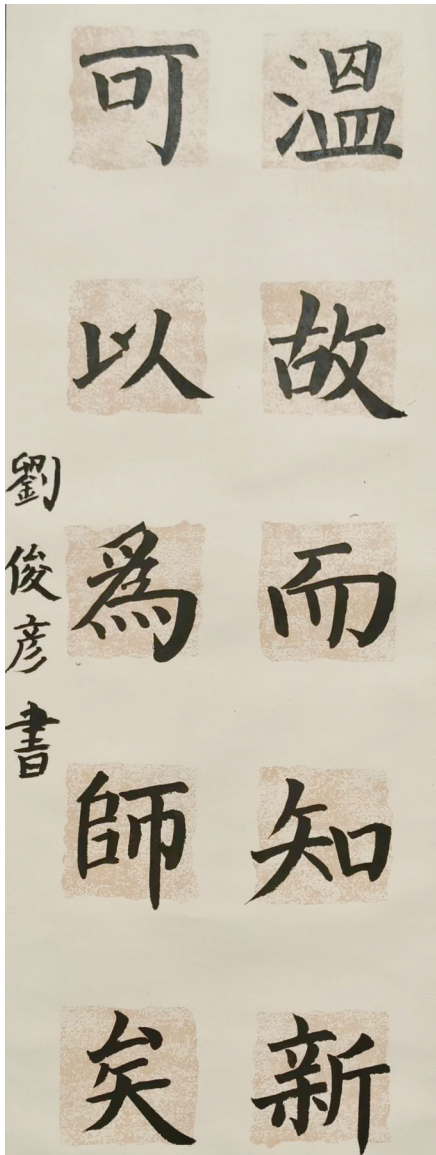 溫故而知新
可以爲師矣
劉俊彦書